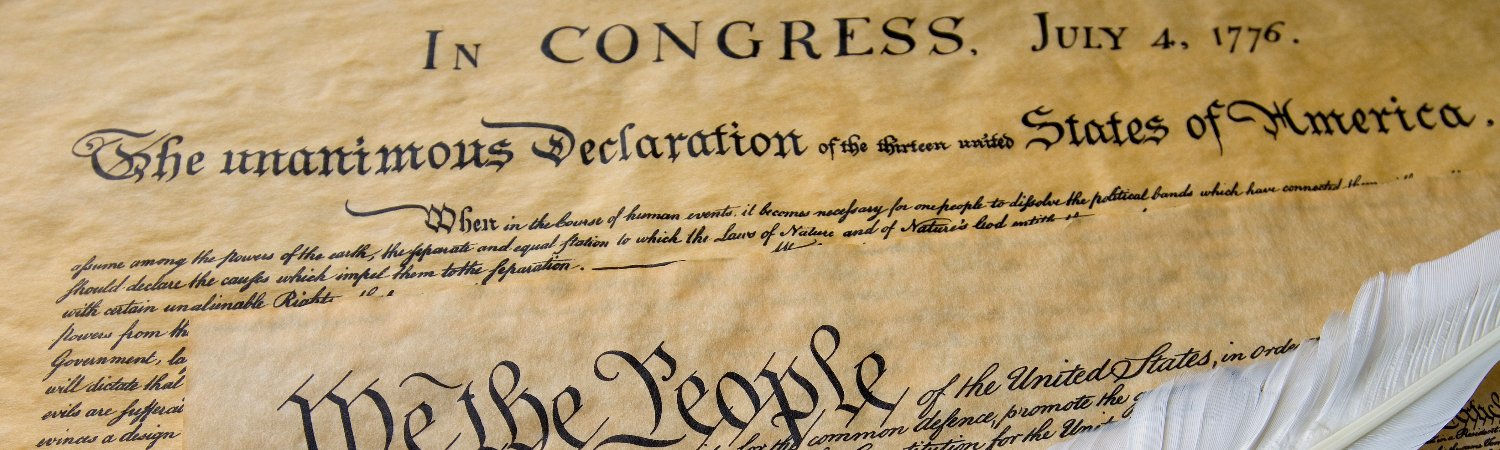 In CONGRESS, July 4, 1776.
The unanimous Declaration of the thirteen united States of America.
When in the Course of human events, it becomes necessary for one people to dissolve the political bands which have connected
assume among the powers of the earth, the separate and equal station to which the Laws of Nature and of Nature's God
should declare the causes which impel them to the separation.
with certain unalienable Rights
powers from
Government,
will dictate that
evils are
evinces a design
We the People of the United States, in
for the common defence, promote the
for the